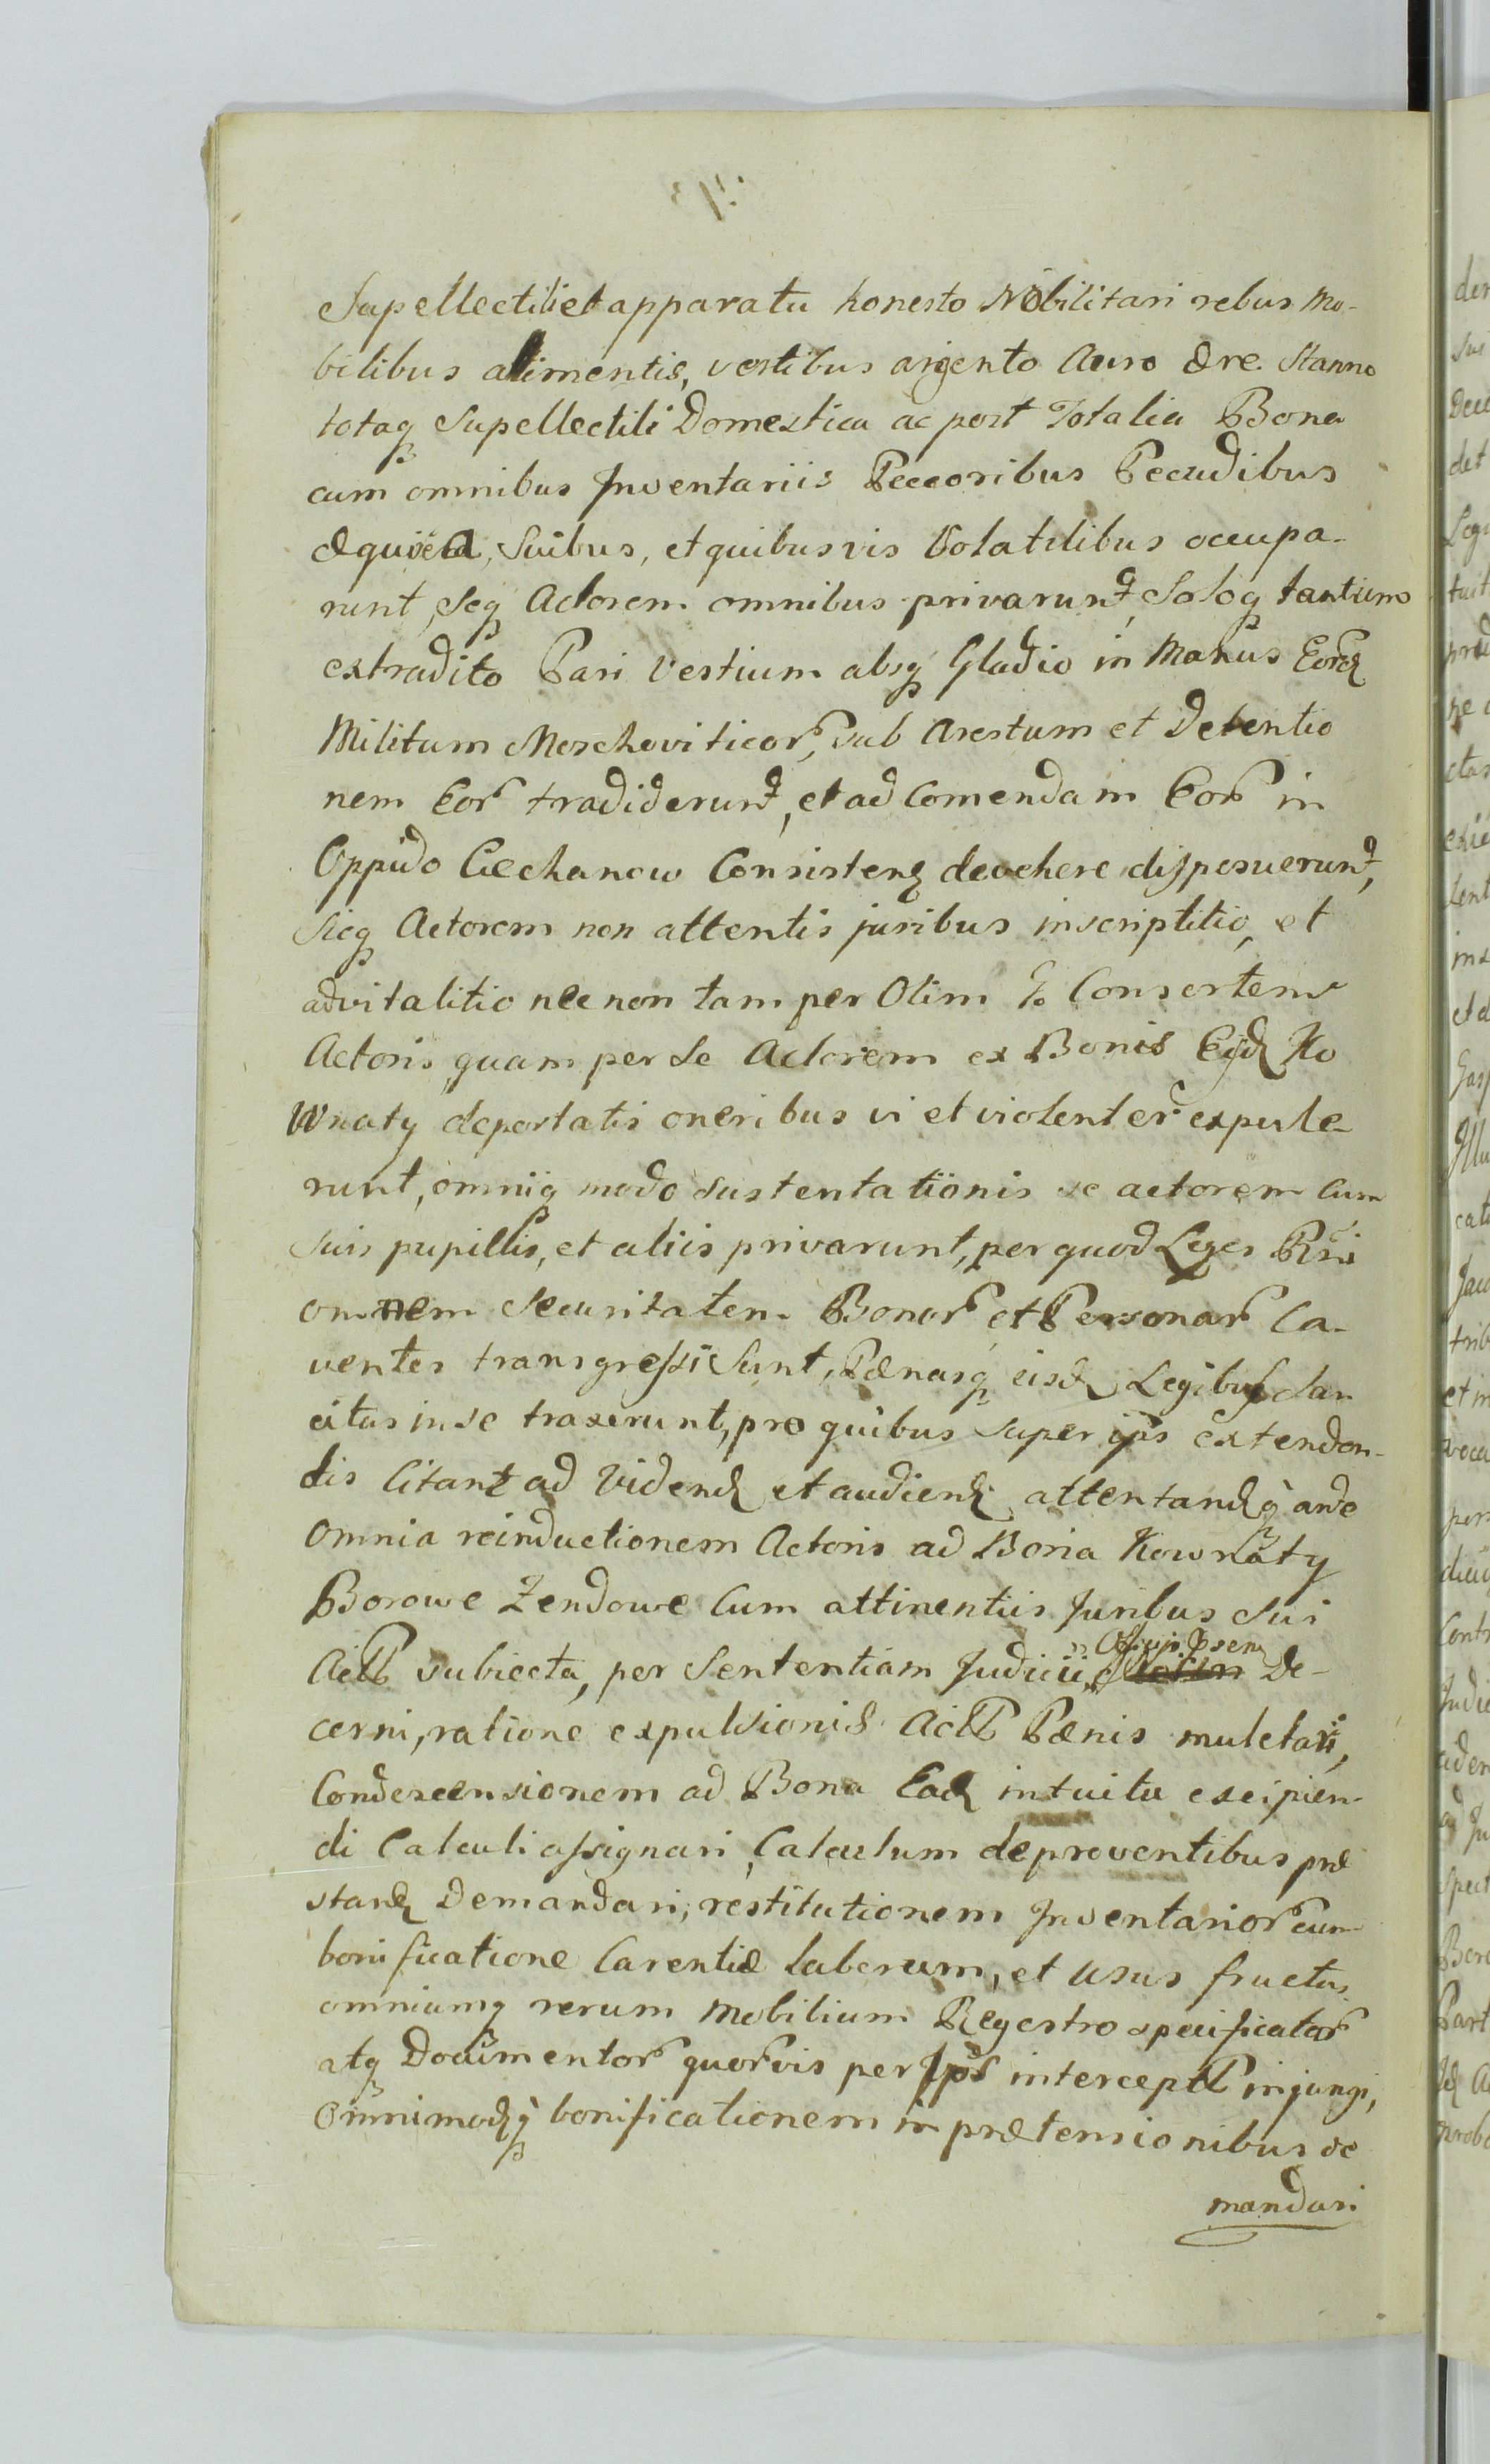 Supellectili et apparatu honesto Nobilitari rebus mo-
bilibus alimentis, vestibus argento Auro ære Stanno
totaq Supellectili Domestica ac post Totalia Bona
cum omnibus Inventariis Peccoribus Pecudibus
Suibus, et quibusvis Volatilibus occupa-
runt, Seq Actorem omnibus privarunt, Soloq tantum
extradito Pari Vestium absq Gladio in Manus Eord
Militum Moschoviticor, sub Arestum et Detentio
nem Eor tradiderunt, et ad Comendam Eor in
Oppido Ciechanow Consisten devehere disposuerunt,
Sicq Actorem non attentis juribus inscriptitio, et
advitalitio nec non tam per Olim Consortem
Actoris quam per Se Actorem ex Bonis Ejd Ko
wnaty deportatis oneribus vi et violenter expule-
runt, omniq modo sustentationis se actorem cum
suis pupillis, et aliis privarunt, per quod Leges Rni
omnem Securitatem Bonor et Personar Ca-
ventes transgressi Sunt, Pænasq eisd Legibus San
citas in se traxerunt, pro quibus super ipis extenden-
dis Citant ad Vidend et audiend attentandq ante
Omnia reinductionem Actoris ad Bona Kownaty
Borowe Zendowe Cum attinentiis Juribus Sui
Actt subiecta, per Sententiam Judicii, Officij Psen De-
cerni, ratione expulsionis Actt Pænis mulctari,
Condescensionem ad Bona Ead intuitu excipien-
di Calculi assignari, Calculum de proventibus præ
stand Demandari, restitutionem Inventarior cum
bonificatione Carentiæ laborum, et usus fructus
omniumq rerum Mobilium Regestro specificator
atq Documentor quorvis per Ipos intercept injungi,
Omnimodq bonificationem in prætensionibus de
mandari